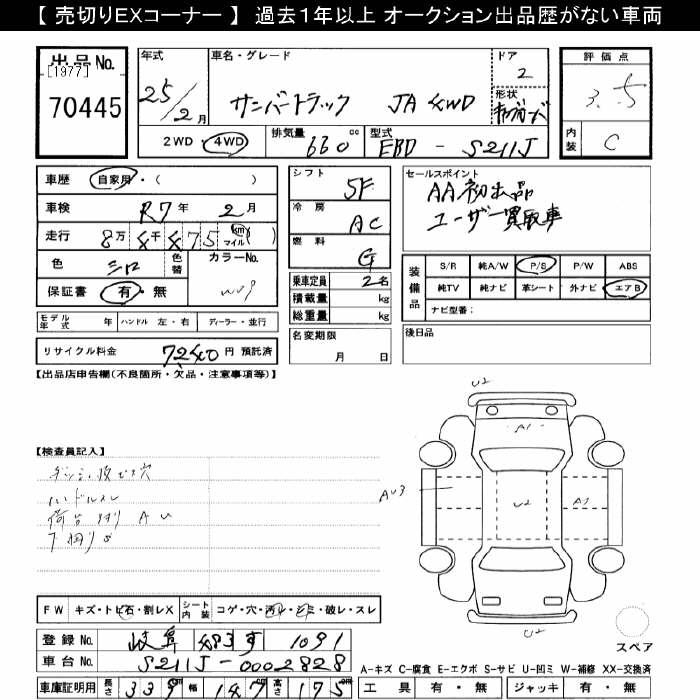 【 売切りEXコーナー 】 過去1年以上 オークション出品歴がない車両
出品No.
[1977]
70445
年式
25/2月
車名・グレード
サンバートラック JA 4WD
ドア
2
形状
評価点
3.5
2WD・4WD
排気量
660 cc
型式
EBD - S211J
内装
C
車歴 自家用・( )
車検 R7年 2月
走行 8万 4千 475 km マイル ( )
色 シロ
色替
カラーNo.
保証書 有・無
モデル年式 年 ハンドル 左・右 ディーラー・並行
リサイクル料金 7240 円 預託済
シフト 5F
冷房 AC
燃料 G
乗車定員 2名
積載量 kg
総重量 kg
名変期限
月 日
セールスポイント
AA初出品
ユーザー買取車
装備品
S/R 純A/W P/S P/W ABS
純TV 純ナビ 革シート 外ナビ エアB
ナビ型番:
後日品
【出品店申告欄(不良箇所・欠品・注意事項等)】
【検査員記入】
ハンドルスレ
荷台 AU
下廻りS
U2
A1
AU3
U2
A1
U2
スペア
FW キズ・トビ石・割レX
シート内装 コゲ・穴・汚レ・シミ・破レ・スレ
登録No. 岐阜 483す 1091
車台No. S211J-0002828
A-キズ C-腐食 E-エクボ S-サビ U-凹ミ W-補修 XX-交換済
車庫証明用 長さ 339 cm 幅 147 高さ 175 cm
工具 有・無 ジャッキ 有・無